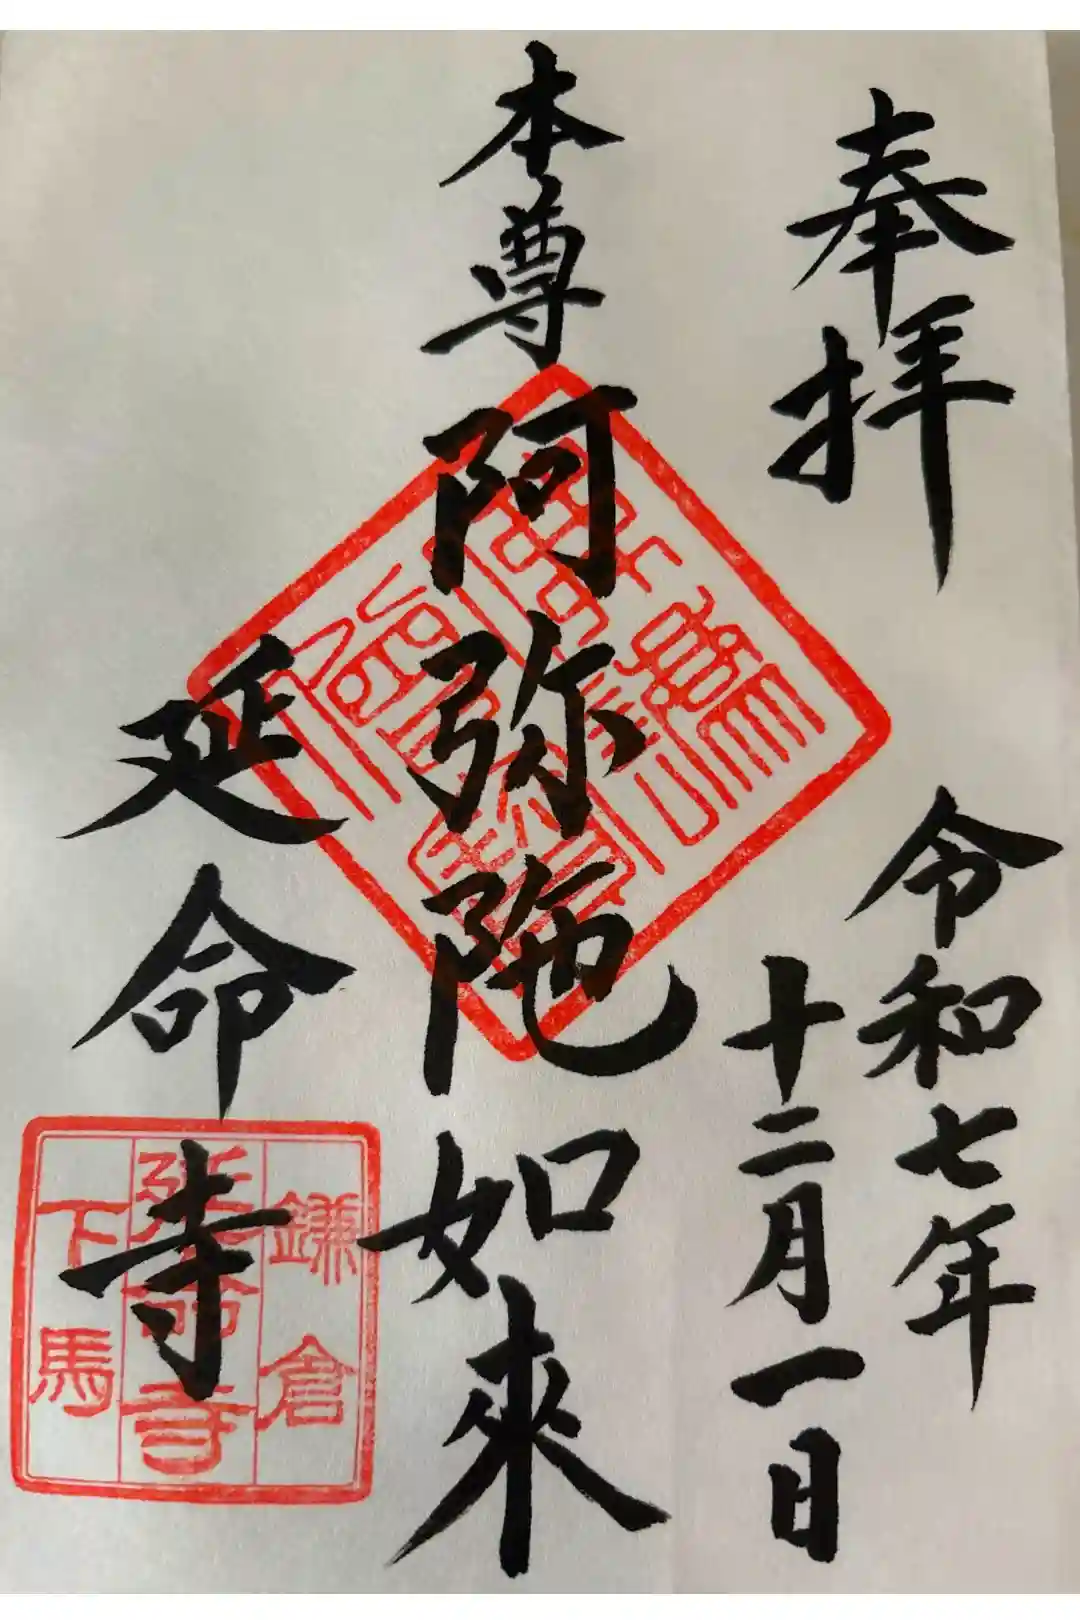 奉拝
令和七年
十二月一日
本尊阿弥陀如來
延命寺
鎌倉
延命寺
下馬